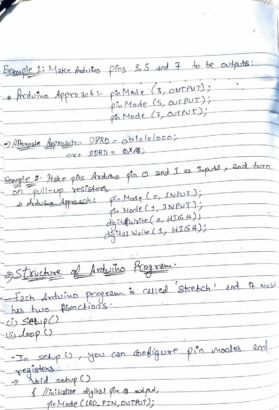 Example 1: Make Arduino pins 3, 5 and 7 to be outputs.
* Arduino Approach:- pinMode (3, OUTPUT);
pinMode (5, OUTPUT);
pinMode (7, OUTPUT);
→ Alternate Approach:- DDRD = 0b10101000;
DDRD = 0xA8;
Example 2: Make pins Arduino pin 0 and 1 as Inputs, and turn
on pull-up resistors
* Arduino Approach: pinMode (0, INPUT);
pinMode (1, INPUT);
digitalWrite (0, HIGH);
digitalWrite (1, HIGH);
Structure of Arduino Program.
- Each Arduino program is called 'Sketch' and it must
has two functions.
(i) setup()
(ii) loop()
- In setup(), you can configure pin modes and
registers.
→ void setup()
{ //initialize digital pin output
pinMode (LED_PIN, OUTPUT);